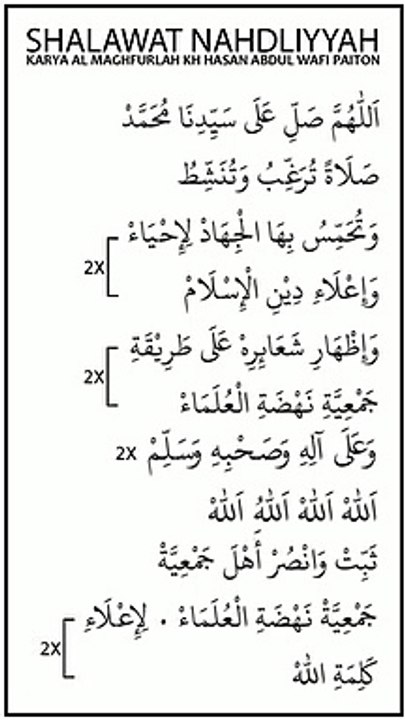 SHALAWAT NAHDLIYYAH
KARYA AL MAGHFURLAH KH HASAN ABDUL WAFI PAITON
اَللّٰهُمَّ صَلِّ عَلَى سَيِّدِنَا مُحَمَّدْ
صَلَاةً تُرَغِّبُ وَتُنَشِّطُ
وَتُحَمِّسُ بِهَا الْجِهَادْ لِإِحْيَاءْ
2X
وَإِعْلَاءِ دِيْنِ الْإِسْلَامْ
وَإِظْهَارِ شَعَايِرِهْ عَلَى طَرِيْقَةِ
2X
جَمْعِيَّةِ نَهْضَةِ الْعُلَمَاءْ
وَعَلَى آلِهِ وَصَحْبِهِ وَسَلِّمْ 2X
اَللهْ اَللهْ اَللهُ اَللهْ
ثَبِّتْ وَانْصُرْ أَهْلَ جَمْعِيَّةْ
جَمْعِيَّةْ نَهْضَةِ الْعُلَمَاءْ . لِإِعْلَاءِ
2X
كَلِمَةِ اللهْ